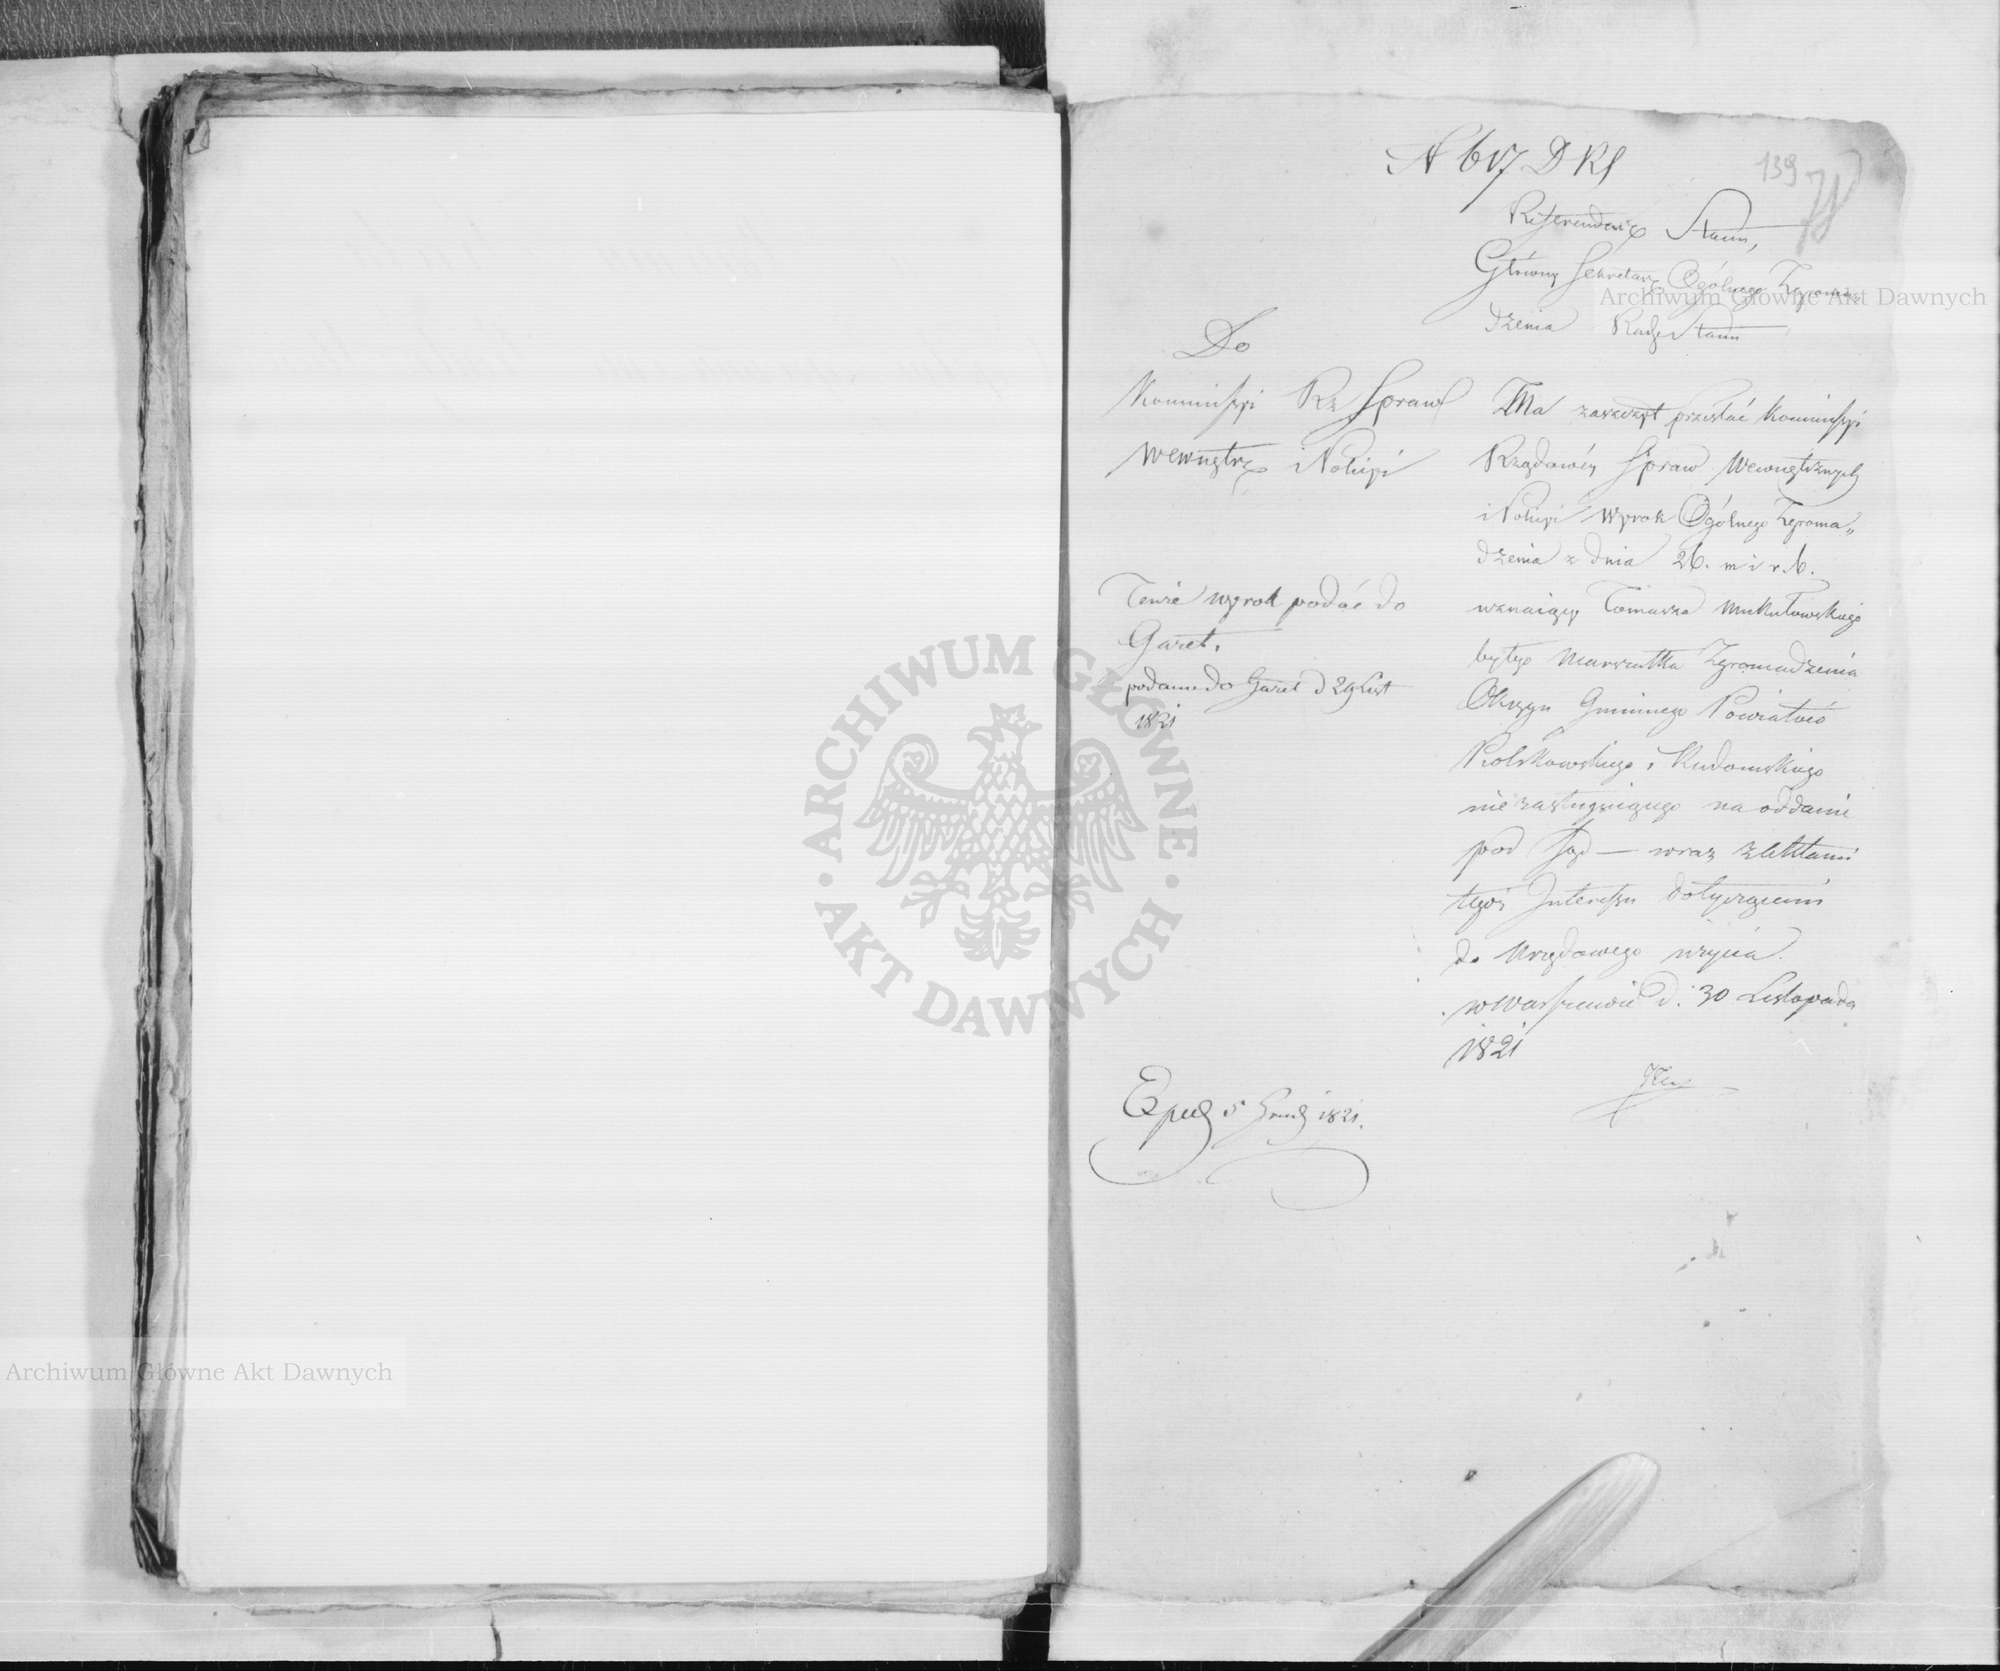 N 617 D R S
139
Referendarz Stanu,
Główny Sekretarz Ogólnego Zgroma-
dzenia Rady Stanu
Do
Kommissyi Rz Spraw
Wewnętrz i Policyi
Ma zaszczyt przesłać Kommissyi
Rządowéy Spraw Wewnętrznych
i Policyi Wyrok Ogólnego Zgroma„
dzenia z dnia 26. m i r. b.
uznaiący Tomasza
byłego Marszałka Zgromadzenia
Okręgu Gminnego Powiatów
i Radomskiego
niezasługuiącego na oddanie
pod Sąd — wraz z Aktami
tegoż Interessu dotyczącemi
do Urzędowego użycia.
w Warszawie d. 30 Listopada
1821
Tenże wyrok podać do
Gazet.
podano do Gazet d 29 List
1821
Exped 5 Grud 1821.
Archiwum Główne Akt Dawnych
ARCHIWUM GŁÓWNE · AKT DAWNYCH ·
Archiwum Główne Akt Dawnych